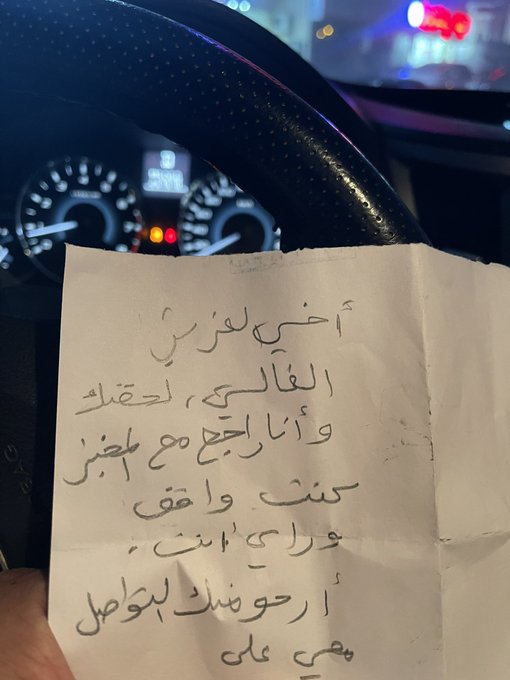 أخي لعزيزي
الغالي، لحقتك
وأنا راجع مع المخبز
كنت واقف
وراي أنت.
أرجو منك التواصل
معي على